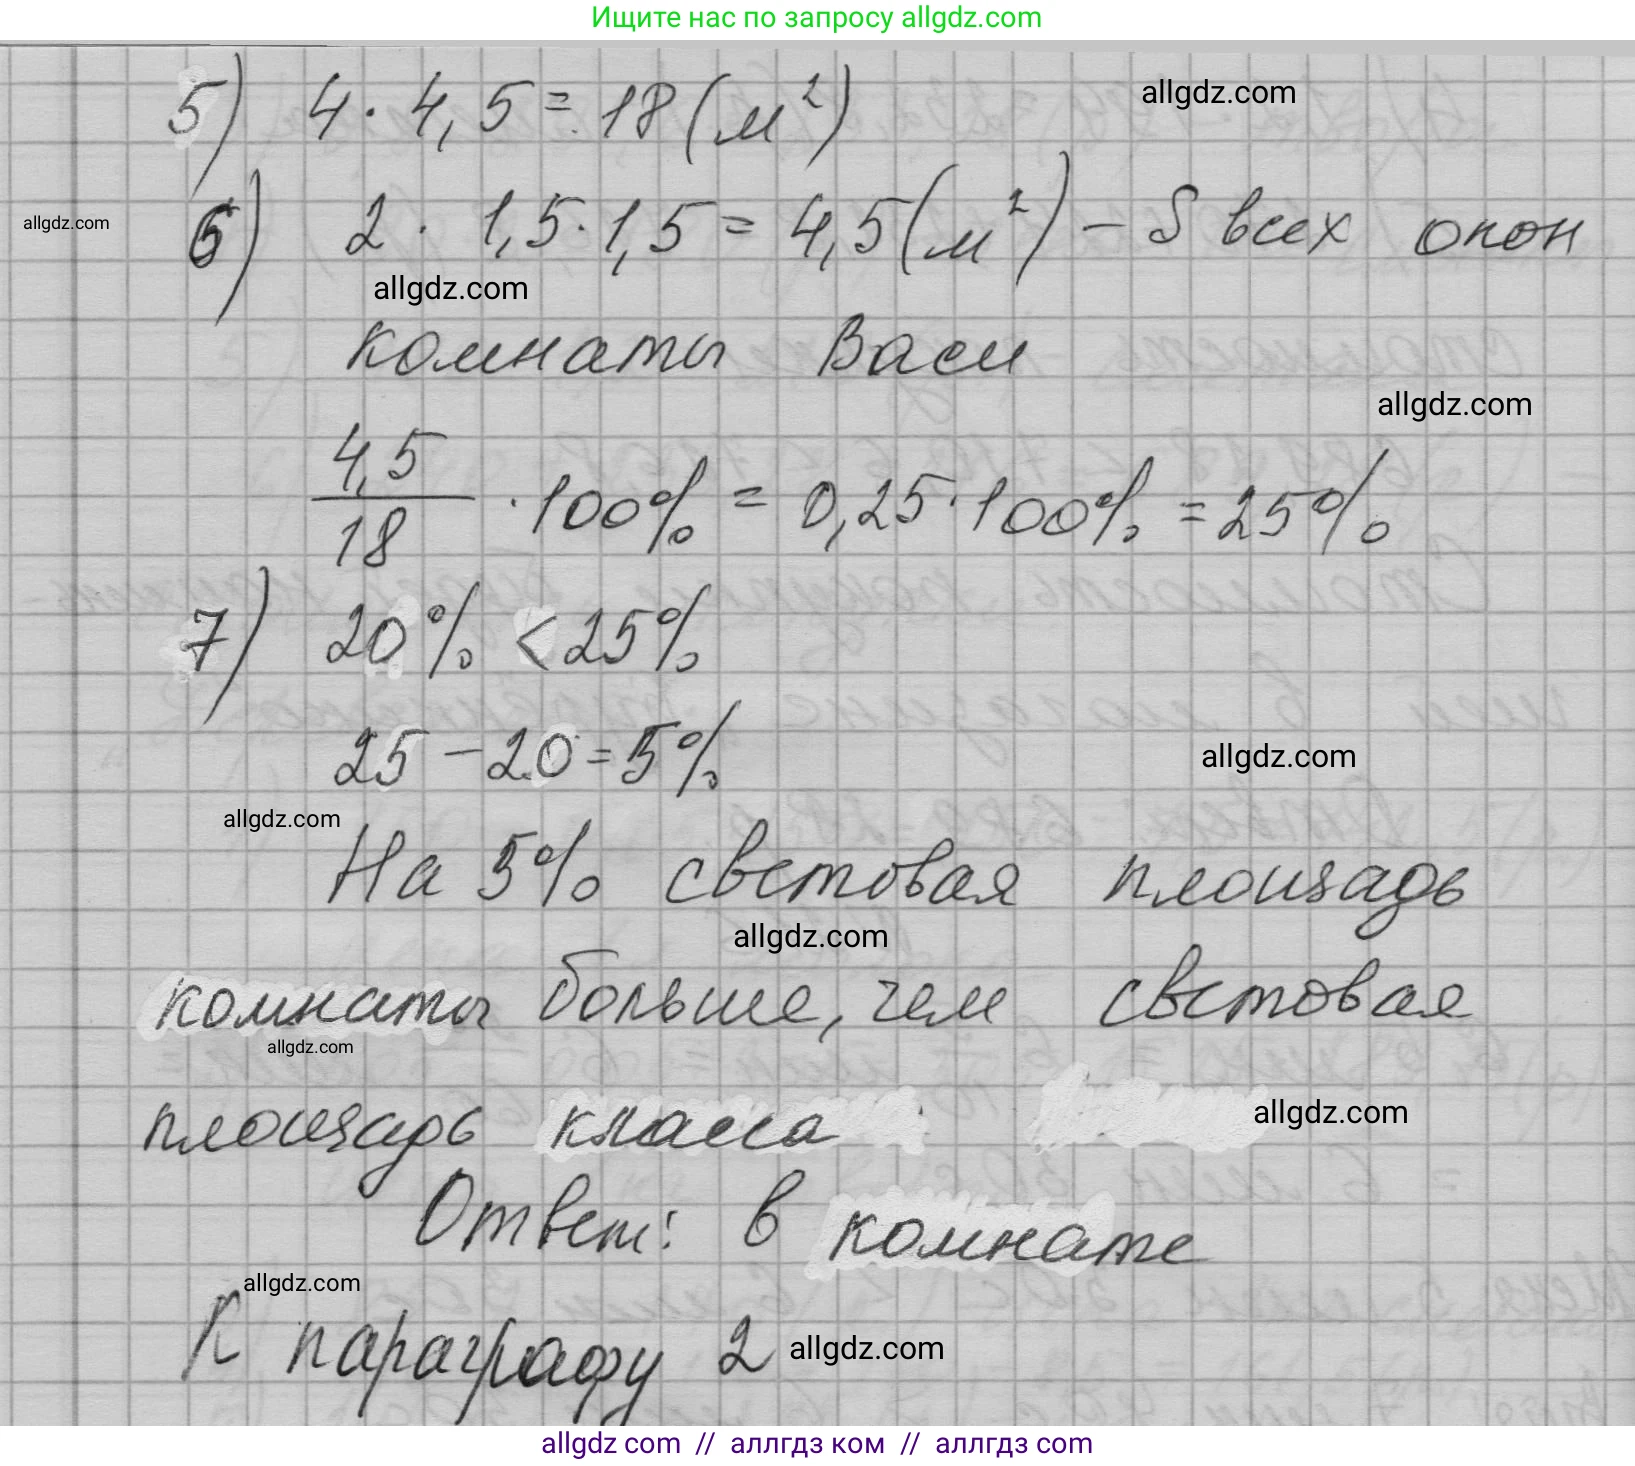 Ищите нас по запросу allgdz.com
5) 4 · 4,5 = 18 (м²)
allgdz.com
allgdz.com
6) 2 · 1,5 · 1,5 = 4,5 (м²) – S всех окон
allgdz.com
комнаты Васи
allgdz.com
4,5/18 · 100% = 0,25 · 100% = 25%
7) 20% < 25%
25 – 20 = 5%
allgdz.com
allgdz.com
На 5% световая площадь
allgdz.com
комнаты больше, чем световая
allgdz.com
площадь класса
allgdz.com
Ответ: в комнате
allgdz.com
К параграфу 2
allgdz.com
allgdz com // аллгдз ком // аллгдз com